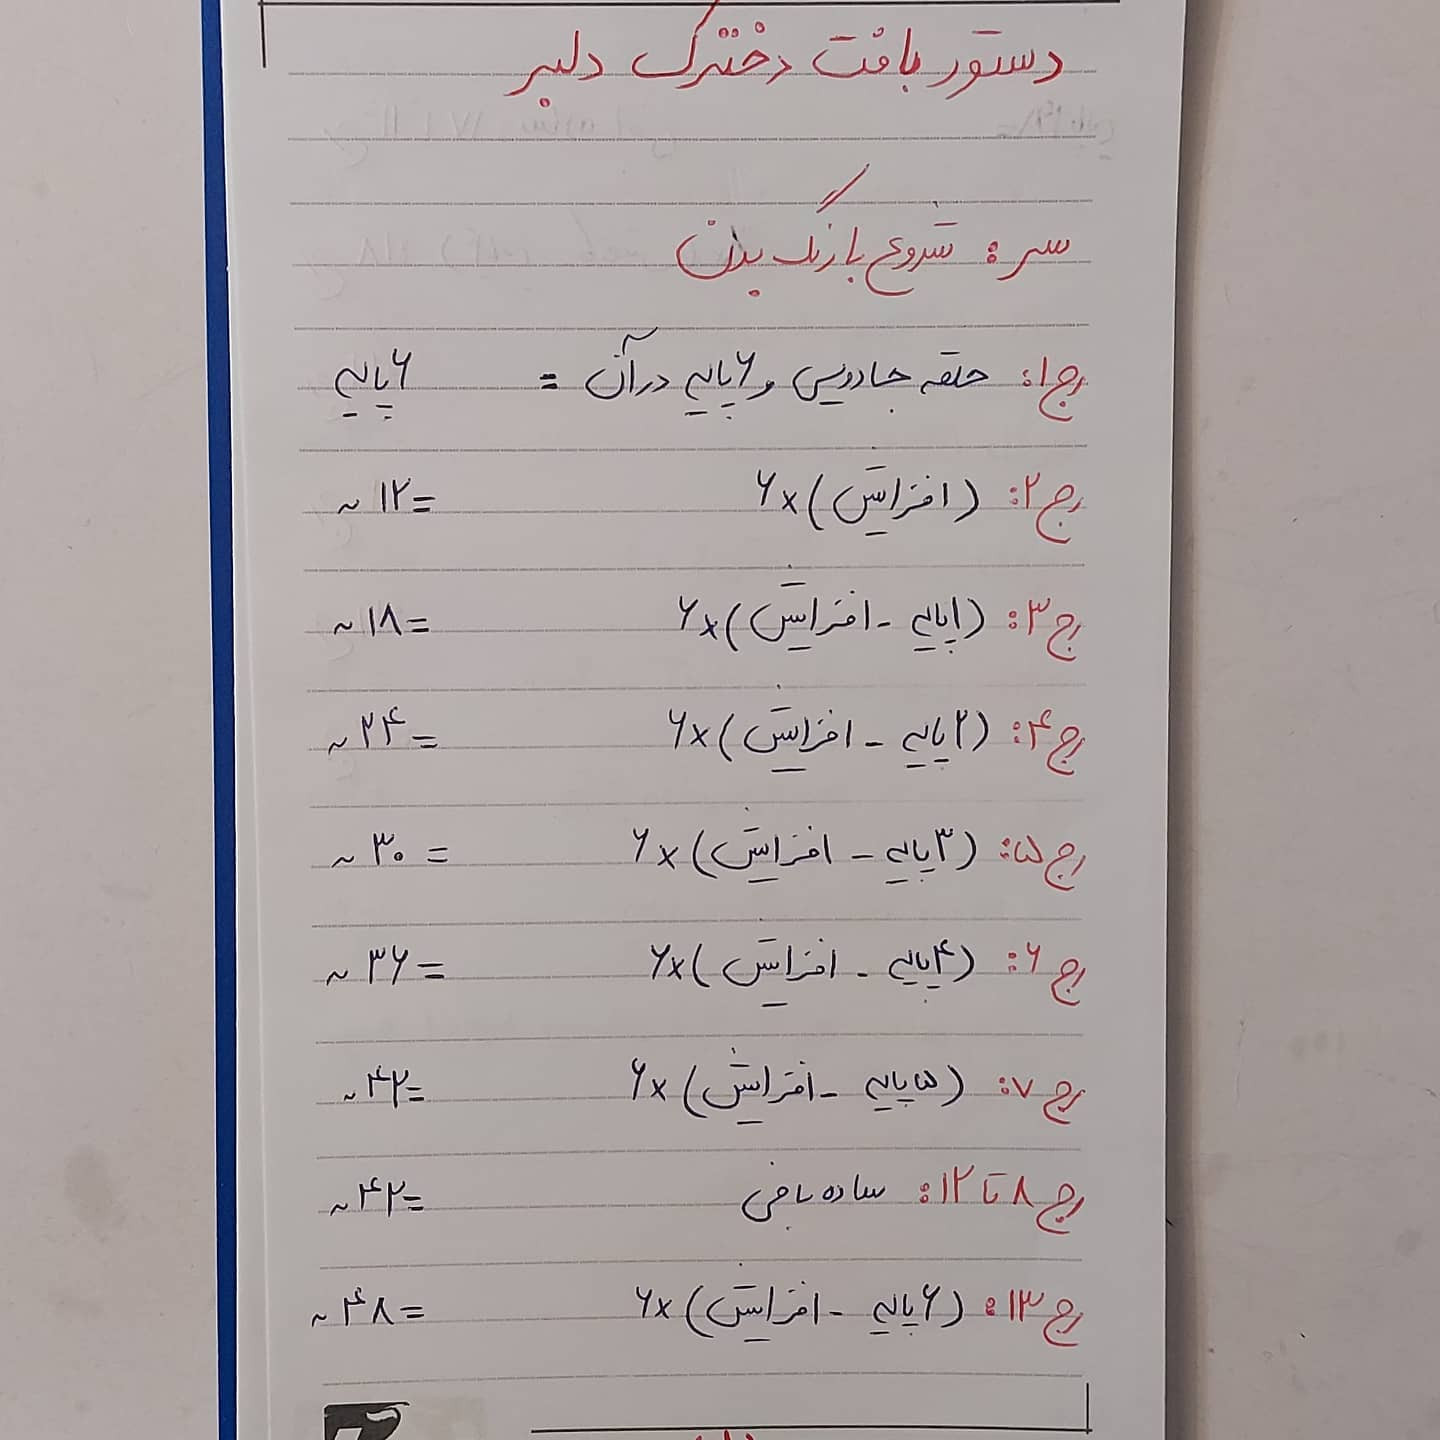 دستور بافت دخترک دلبر
سر: شروع با رنگ بدن
رج۱: حلقه جادویی و ۶پایه در آن = ۶پایه
رج۲: (افزایش)×۶ =۱۲~
رج۳: (۱پایه - افزایش)×۶ =۱۸~
رج۴: (۲پایه - افزایش)×۶ =۲۴~
رج۵: (۳پایه - افزایش)×۶ =۳۰~
رج۶: (۴پایه - افزایش)×۶ =۳۶~
رج۷: (۵پایه - افزایش)×۶ =۴۲~
رج۸ تا ۱۲: ساده بافی =۴۲~
رج۱۳: (۶پایه - افزایش)×۶ =۴۸~